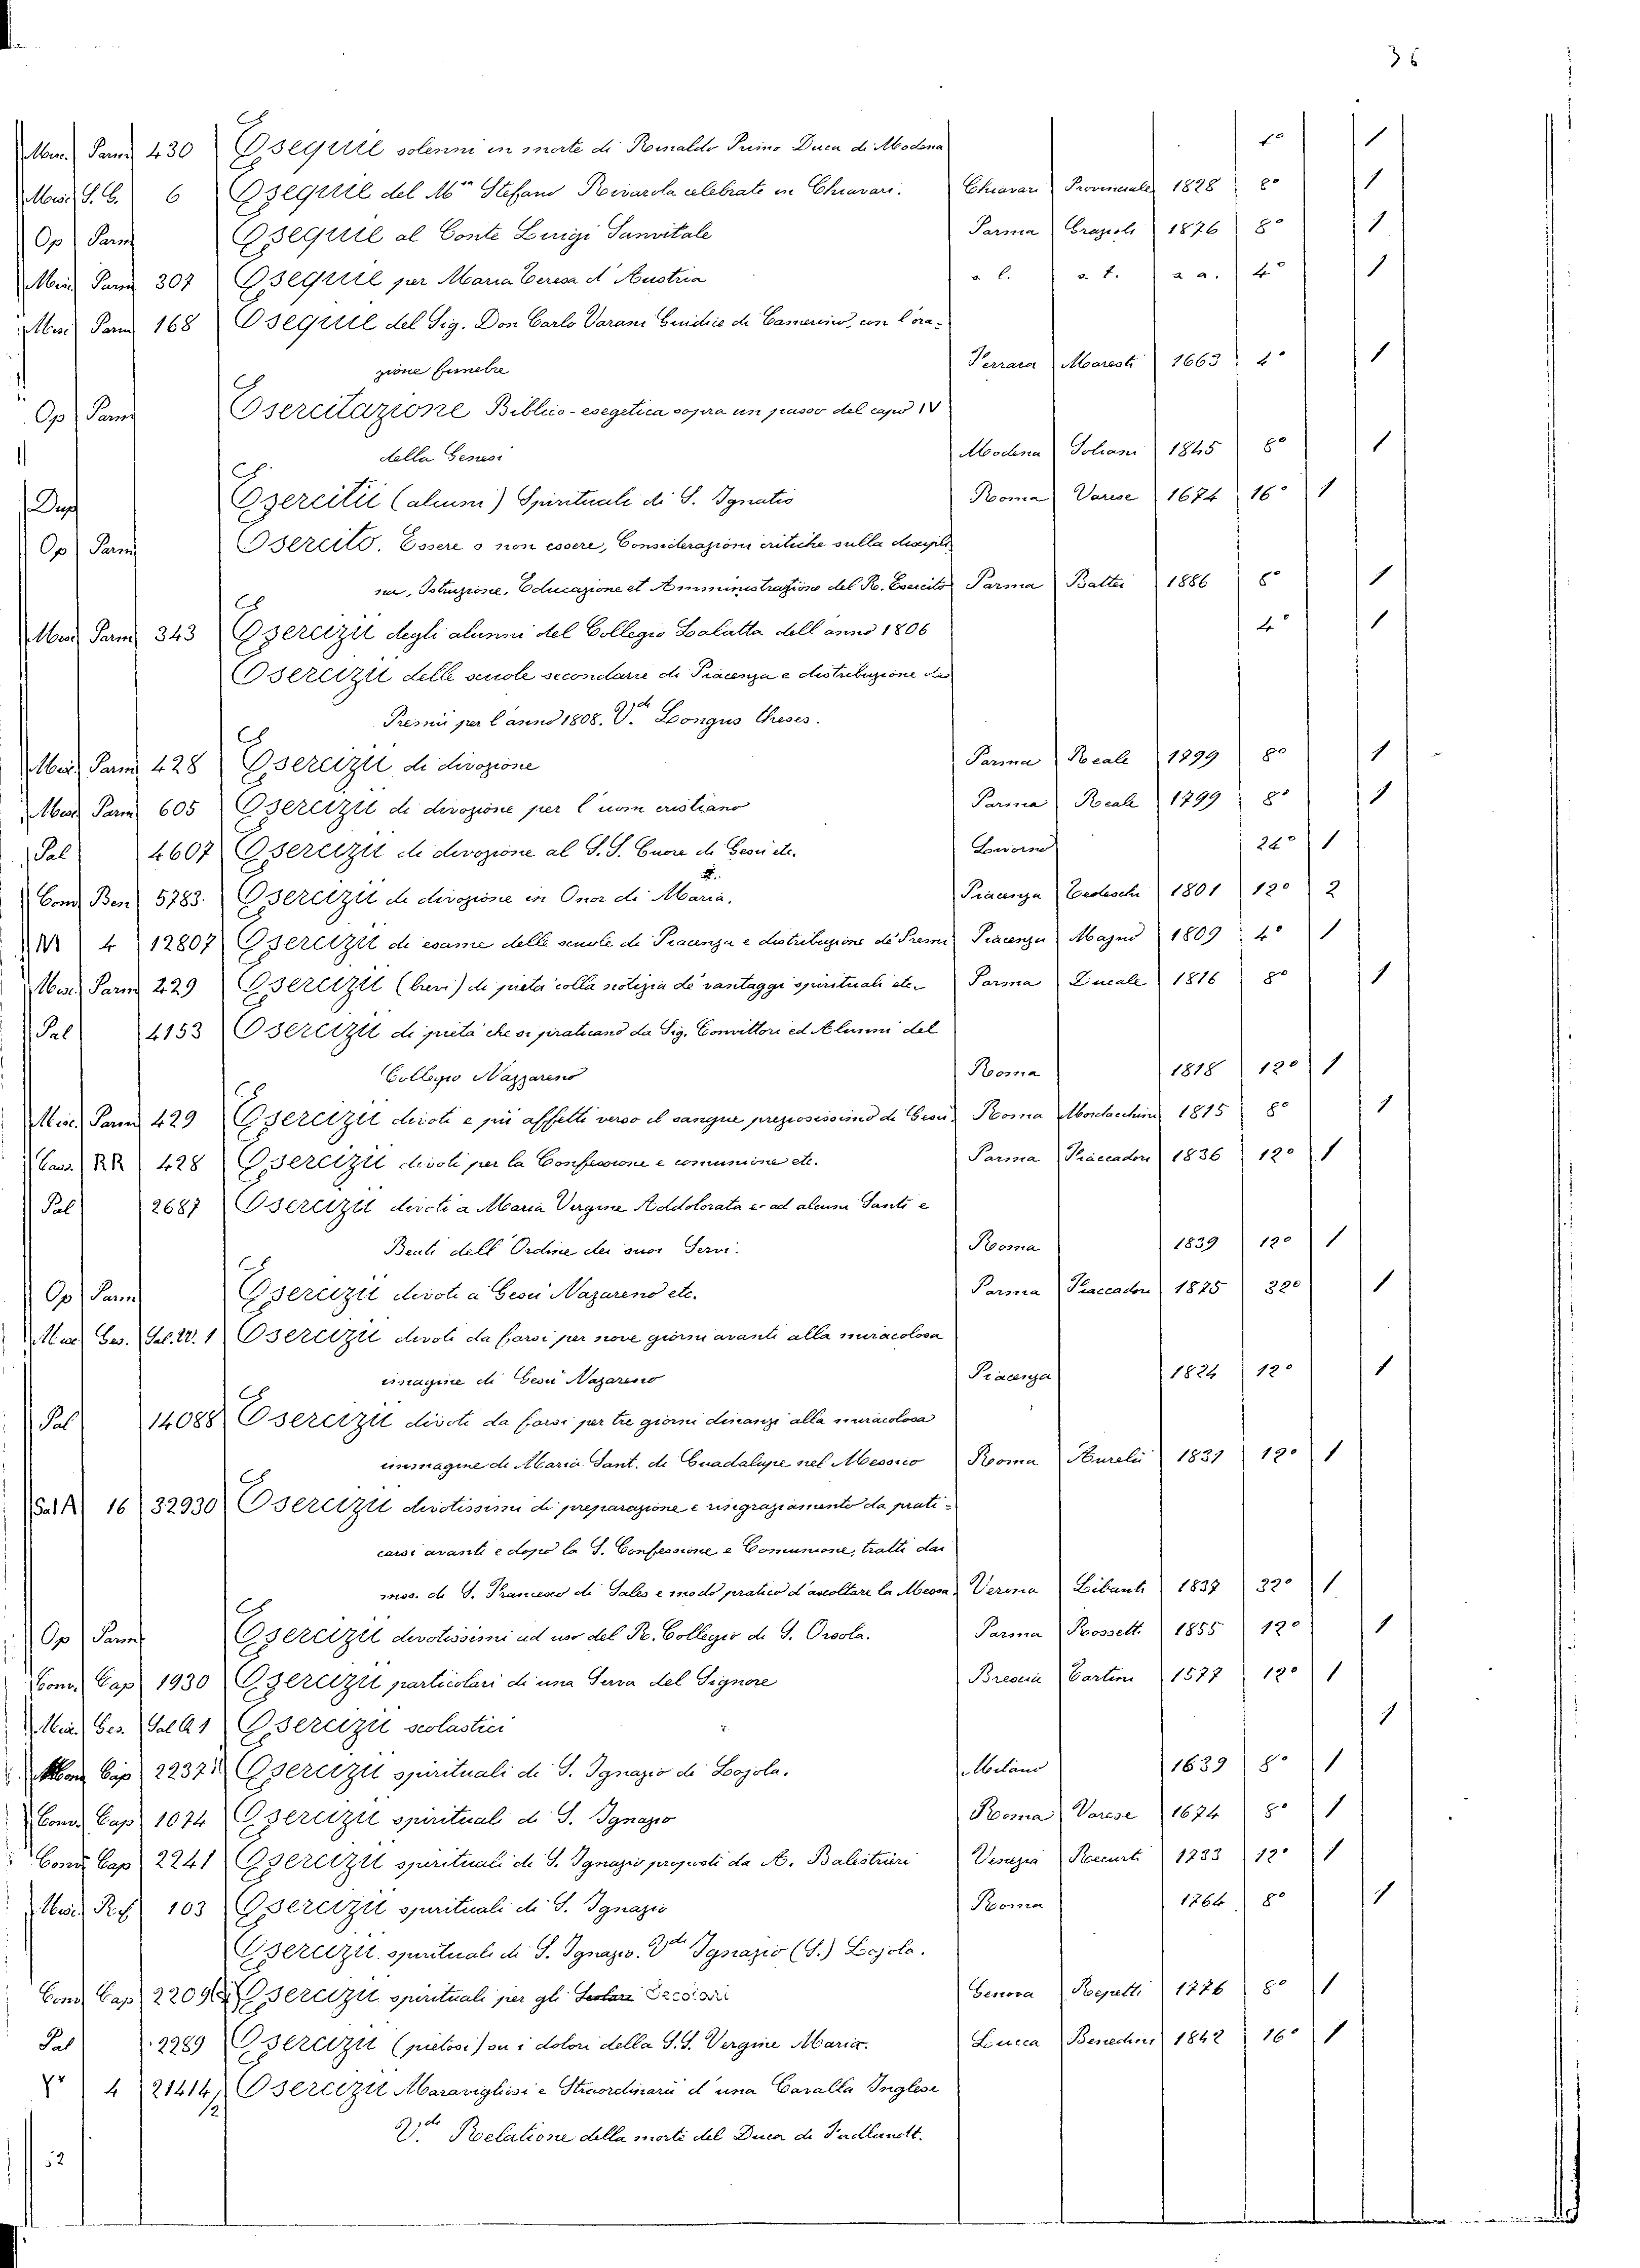 36
Misc. Parm 430 Esequie solenni in morte di Rinaldo Primo Duca di Modena 4° 1
Misc. S. C. 6 Esequie del Mr Stefano Rivarola celebrate in Chiavari. Chiavari Provinciale 1828 8° 1
Op Parm Esequie al Conte Luigi Sanvitale Parma Grazioli 1876 8° 1
Misc Parm 307 Esequie per Maria Teresa d'Austria s. l. s. t. a a. 4° 1
Misc Parm 168 Esequie del Sig. Don Carlo Varani Giudice di Camerino, con l'ora-
zione funebre Ferrara Maresti 1663 4° 1
Op Parm Esercitazione Biblico-esegetica sopra un passo del capo IV
della Genesi Modena Soliani 1845 8° 1
Dup Esercitii (alcuni) Spirituali di S. Ignatio Roma Varese 1674 16° 1
Op Parm Esercito. Essere o non essere, Considerazioni critiche sulla discipli
na, Istruzione, Educazione et Amministrazione del R. Esercito Parma Battei 1886 8° 1
Misc Parm 343 Esercizii degli alunni del Collegio Lalatta dell'anno 1806 4° 1
Esercizii delle scuole secondarie di Piacenza e distribuzione dei
Premii per l'anno 1808. Vd. Longus Theses.
Misc Parm 428 Esercizii di divozione Parma Reale 1799 8° 1
Misc Parm 605 Esercizii di divozione per l'uom cristiano Parma Reale 1799 8° 1
Pal 4607 Esercizii di divozione al S. S. Cuore di Gesù etc. Livorno 24° 1
Conv Ben 5783. Esercizii di divozione in Onor di Maria. Piacenza Tedeschi 1801 12° 2
M 4 12807 Esercizii di esame delle scuole di Piacenza e distribuzione de' Premi Piacenza Majno 1809 4° 1
Misc. Parm 229 Esercizii (brevi) di pietà colla notizia de' vantaggi spirituali etc. Parma Ducale 1816 8° 1
Pal 4153 Esercizii di pietà che si praticano da Sig. Convittori ed Alunni del
Collegio Nazzareno Roma 1818 12° 1
Misc. Parm 429 Esercizii divoti e pii affetti verso il sangue preziosissimo di Gesù Roma Mordacchini 1815 8° 1
Cass. RR 428 Esercizii divoti per la Confessione e comunione etc. Parma Fiaccadori 1836 12° 1
Pal 2687 Esercizii divoti a Maria Vergine Addolorata e ad alcuni Santi e
Beati dell'Ordine dei suoi Servi. Roma 1839 12° 1
Op Parm Esercizii devoti a Gesù Nazareno etc. Parma Fiaccadori 1875 32° 1
Misc Ges. Esercizii devoti da farsi per nove giorni avanti alla miracolosa
imagine di Gesù Nazareno Piacenza 1824 12° 1
Pal 14088 Esercizii divoti da farsi per tre giorni dinanzi alla miracolosa
immagine di Maria Sant. di Guadalupe nel Messico Roma Aureli 1837 12° 1
Sal A 16 32930 Esercizii divotissimi di preparazione e ringraziamento da prati-
carsi avanti e dopo la S. Confessione e Comunione, tratti dai
mss. di S. Francesco di Sales e modo pratico d'ascoltare la Messa Verona Libanti 1837 32° 1
Op Parm Esercizii devotissimi ad uso del R. Collegio di S. Orsola. Parma Rossetti 1855 12° 1
Conv. Cap 1930 Esercizii particolari di una Serva del Signore Brescia Cartini 1577 12° 1
Misc. Ges. Sal A 1 Esercizii scolastici 1
Conv Cap 2237 Esercizii spirituali di S. Ignazio di Lojola. Milano 1639 8° 1
Conv. Cap 1074 Esercizii spirituali di S. Ignazio Roma Varese 1674 8° 1
Conv Cap 2241 Esercizii spirituali di S. Ignazio proposti da A. Balestrieri Venezia Recurti 1733 12° 1
Misc Ref 103 Esercizii spirituali di S. Ignazio Roma 1764 8° 1
Esercizii spirituali di S. Ignazio. Vd Ignazio (S.) Lojola.
Conv Cap 2209 Esercizii spirituali per gli Secolari Genova Repetti 1776 8° 1
Pal 2289 Esercizii (pietosi) su i dolori della S. S. Vergine Maria. Lucca Benedini 1842 16° 1
4 21414/12 Esercizii Maravigliosi e Straordinarii d'una Cavalla Inglese
Vd Relatione della morte del Duca di Fridlandt.
52